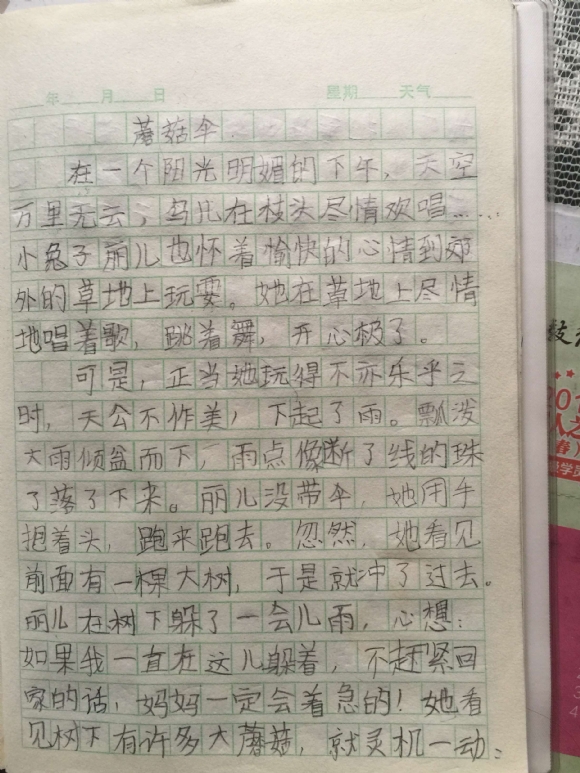 年 月 日 星期 天气
蘑菇伞
在一个阳光明媚的下午，天空
万里无云，鸟儿在枝头尽情欢唱……
小兔子丽儿也怀着愉快的心情到郊
外的草地上玩耍。她在草地上尽情
地唱着歌，跳着舞，开心极了。
可是，正当她玩得不亦乐乎之
时，天公不作美，下起了雨。瓢泼
大雨倾盆而下，雨点像断了线的珠
了落了下来。丽儿没带伞，她用手
抱着头，跑来跑去。忽然，她看见
前面有一棵大树，于是就冲了过去。
丽儿在树下躲了一会儿雨，心想：
如果我一直在这儿躲着，不赶紧回
家的话，妈妈一定会着急的！她看
见树下有许多大蘑菇，就灵机一动：